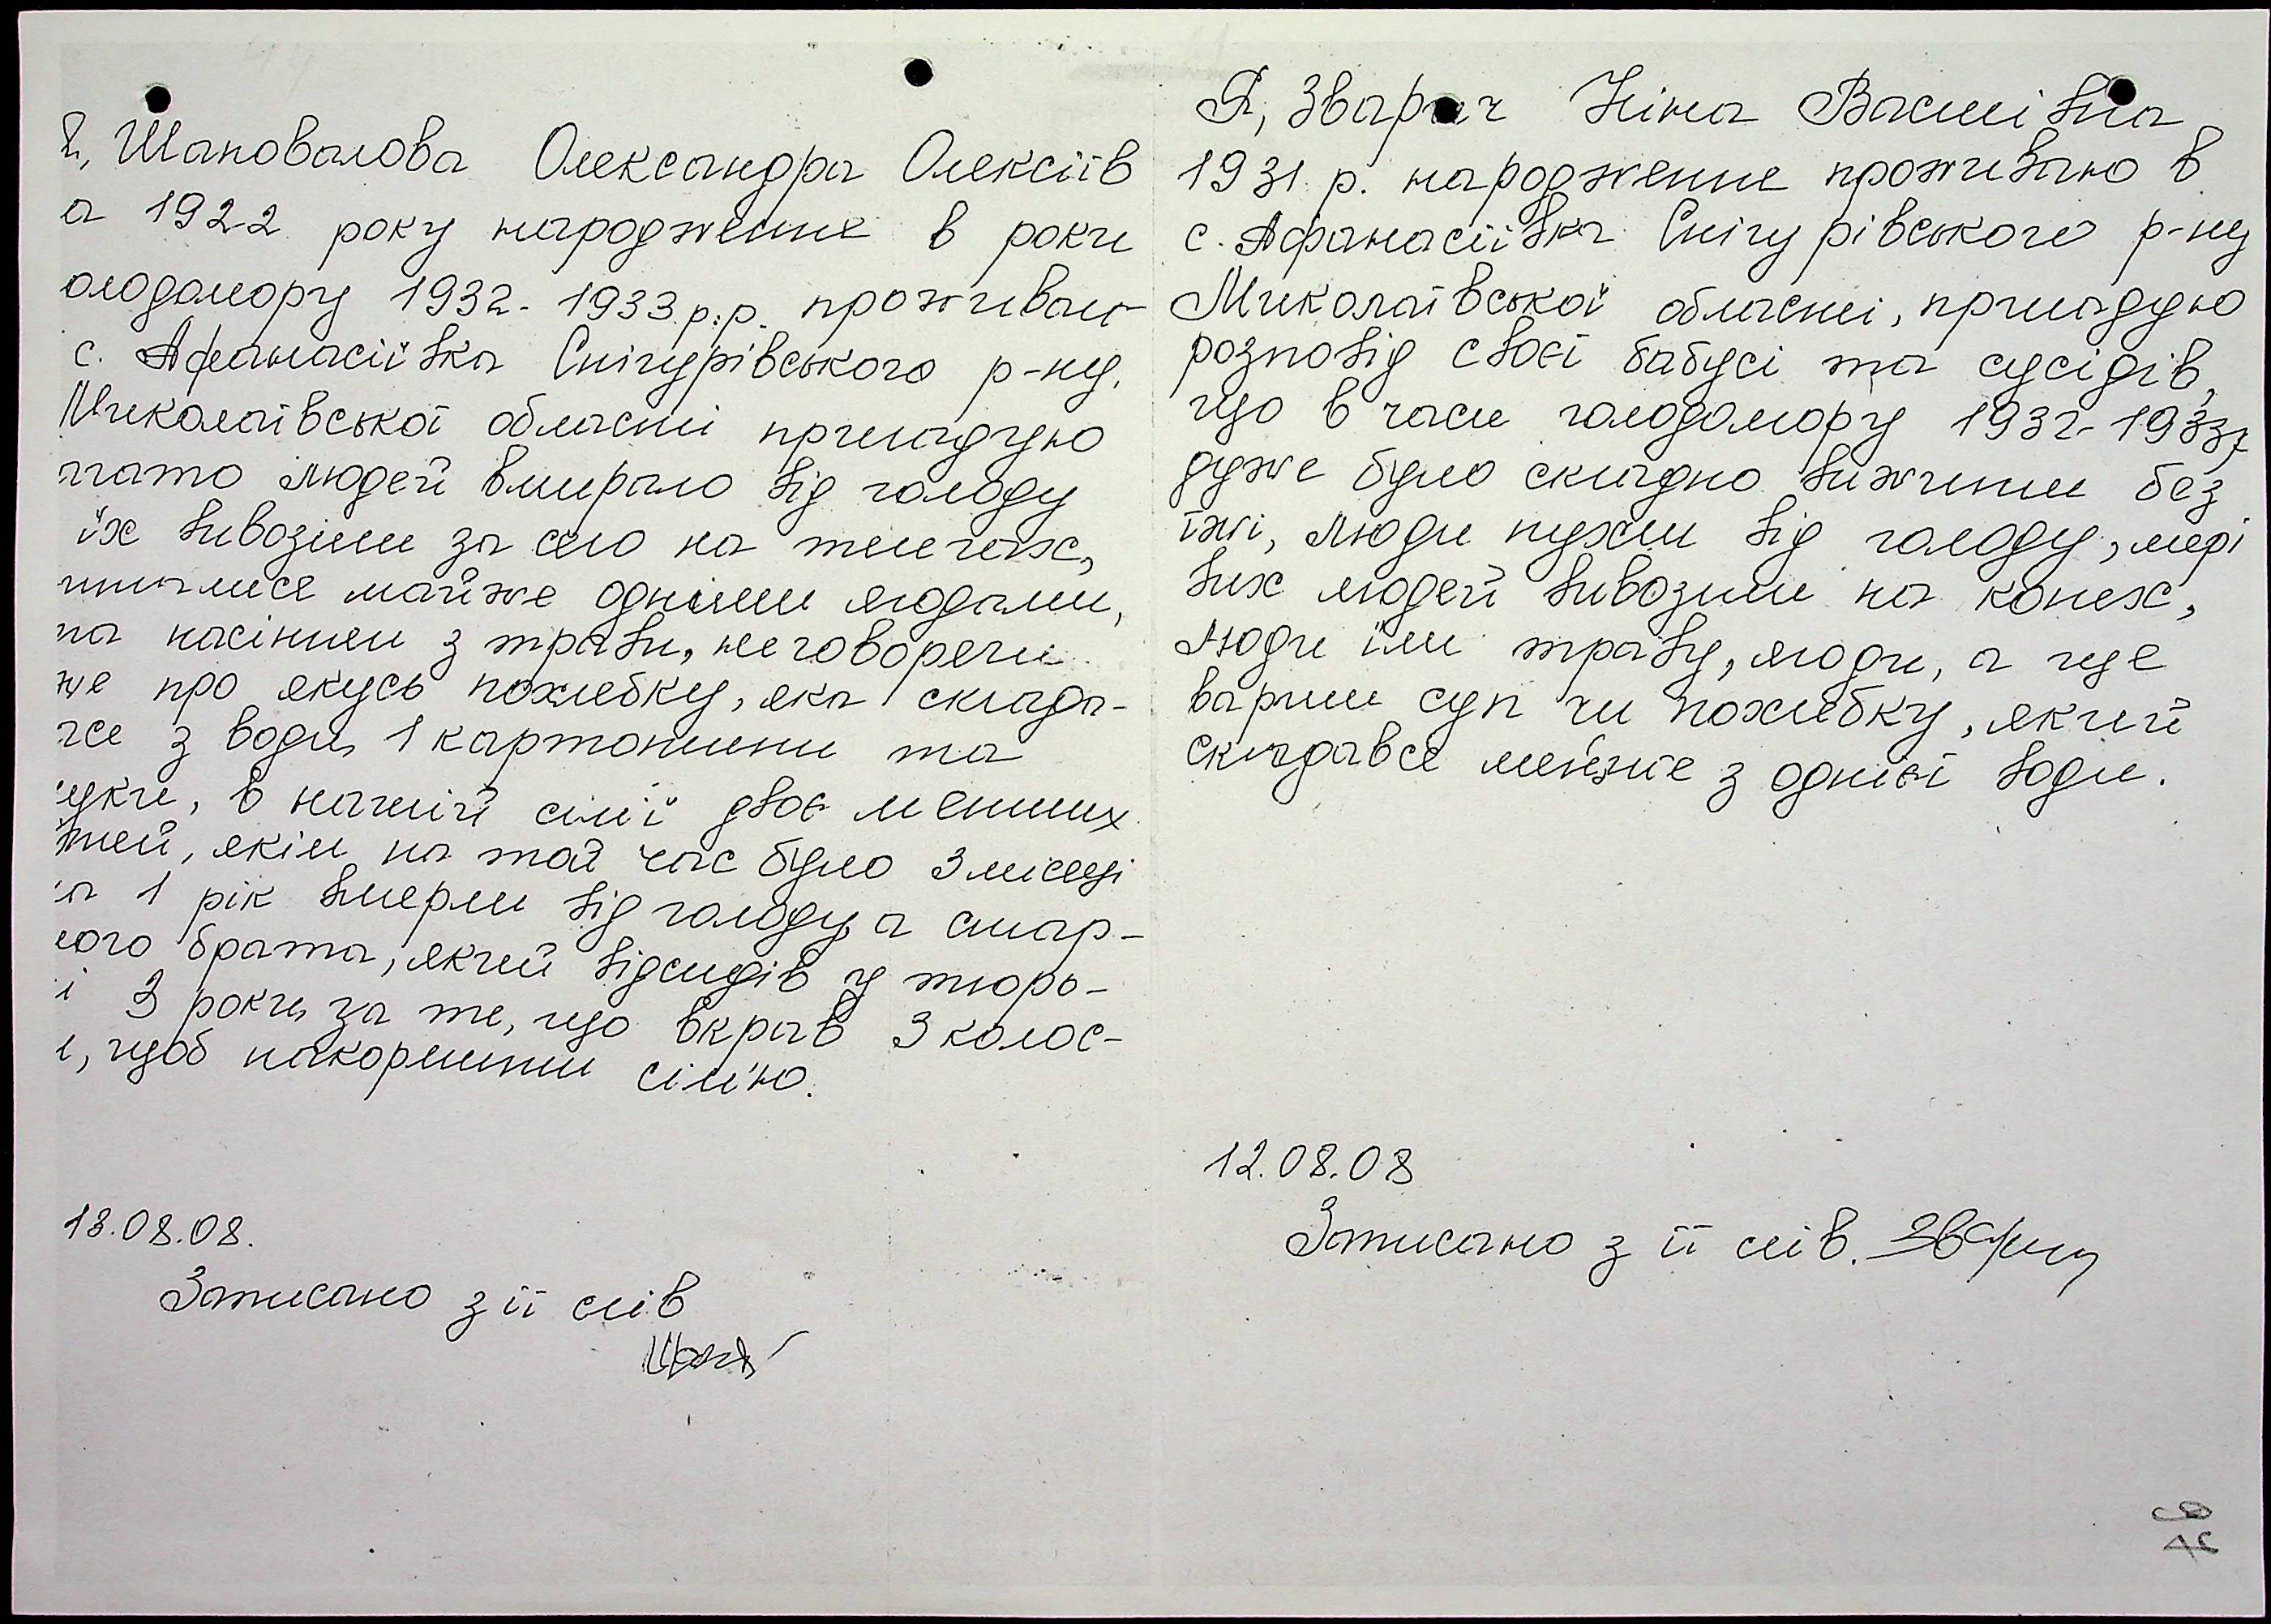 Я, Шаповалова Олександра Олексіїв
а 1922 року народження в роки
олодомору 1932-1933 р.р. проживаю
с. Афанасіївка Снігурівського р-ну,
Миколаївської області пригадую
гато людей вмирало від голоду
їх вивозили за село на телегах,
италися майже одніми ягодами,
па насінням з трави, не говорячи
же про якусь похлебку, яка склада-
ася з води, 1 картоплини та
уки, в нашій сім'ї двоє менших
тей, якім на той час було 3 місяці
а 1 рік вмерли від голоду, а стар-
ого брата, який відсидів у тюрь-
і 3 роки, за те, що вкрав 3 колос-
и, щоб накормити сім'ю.
13.08.08.
Записано з її слів
Я, Зварич Ніна Василівна
1931 р. народження проживаю в
с. Афанасіївка Снігурівського р-ну
Миколаївської області, пригадую
розповід своєї бабусі та сусідів,
що в часи голодомору 1932-1933р
дуже було складно вижити без
їжі, люди пухли від голоду, мерт
вих людей вивозили на конях,
люди їли траву, ягоди, а ще
варили суп чи похлебку, який
складався майже з однієї води.
12.08.08
Записано з її слів. Зварич